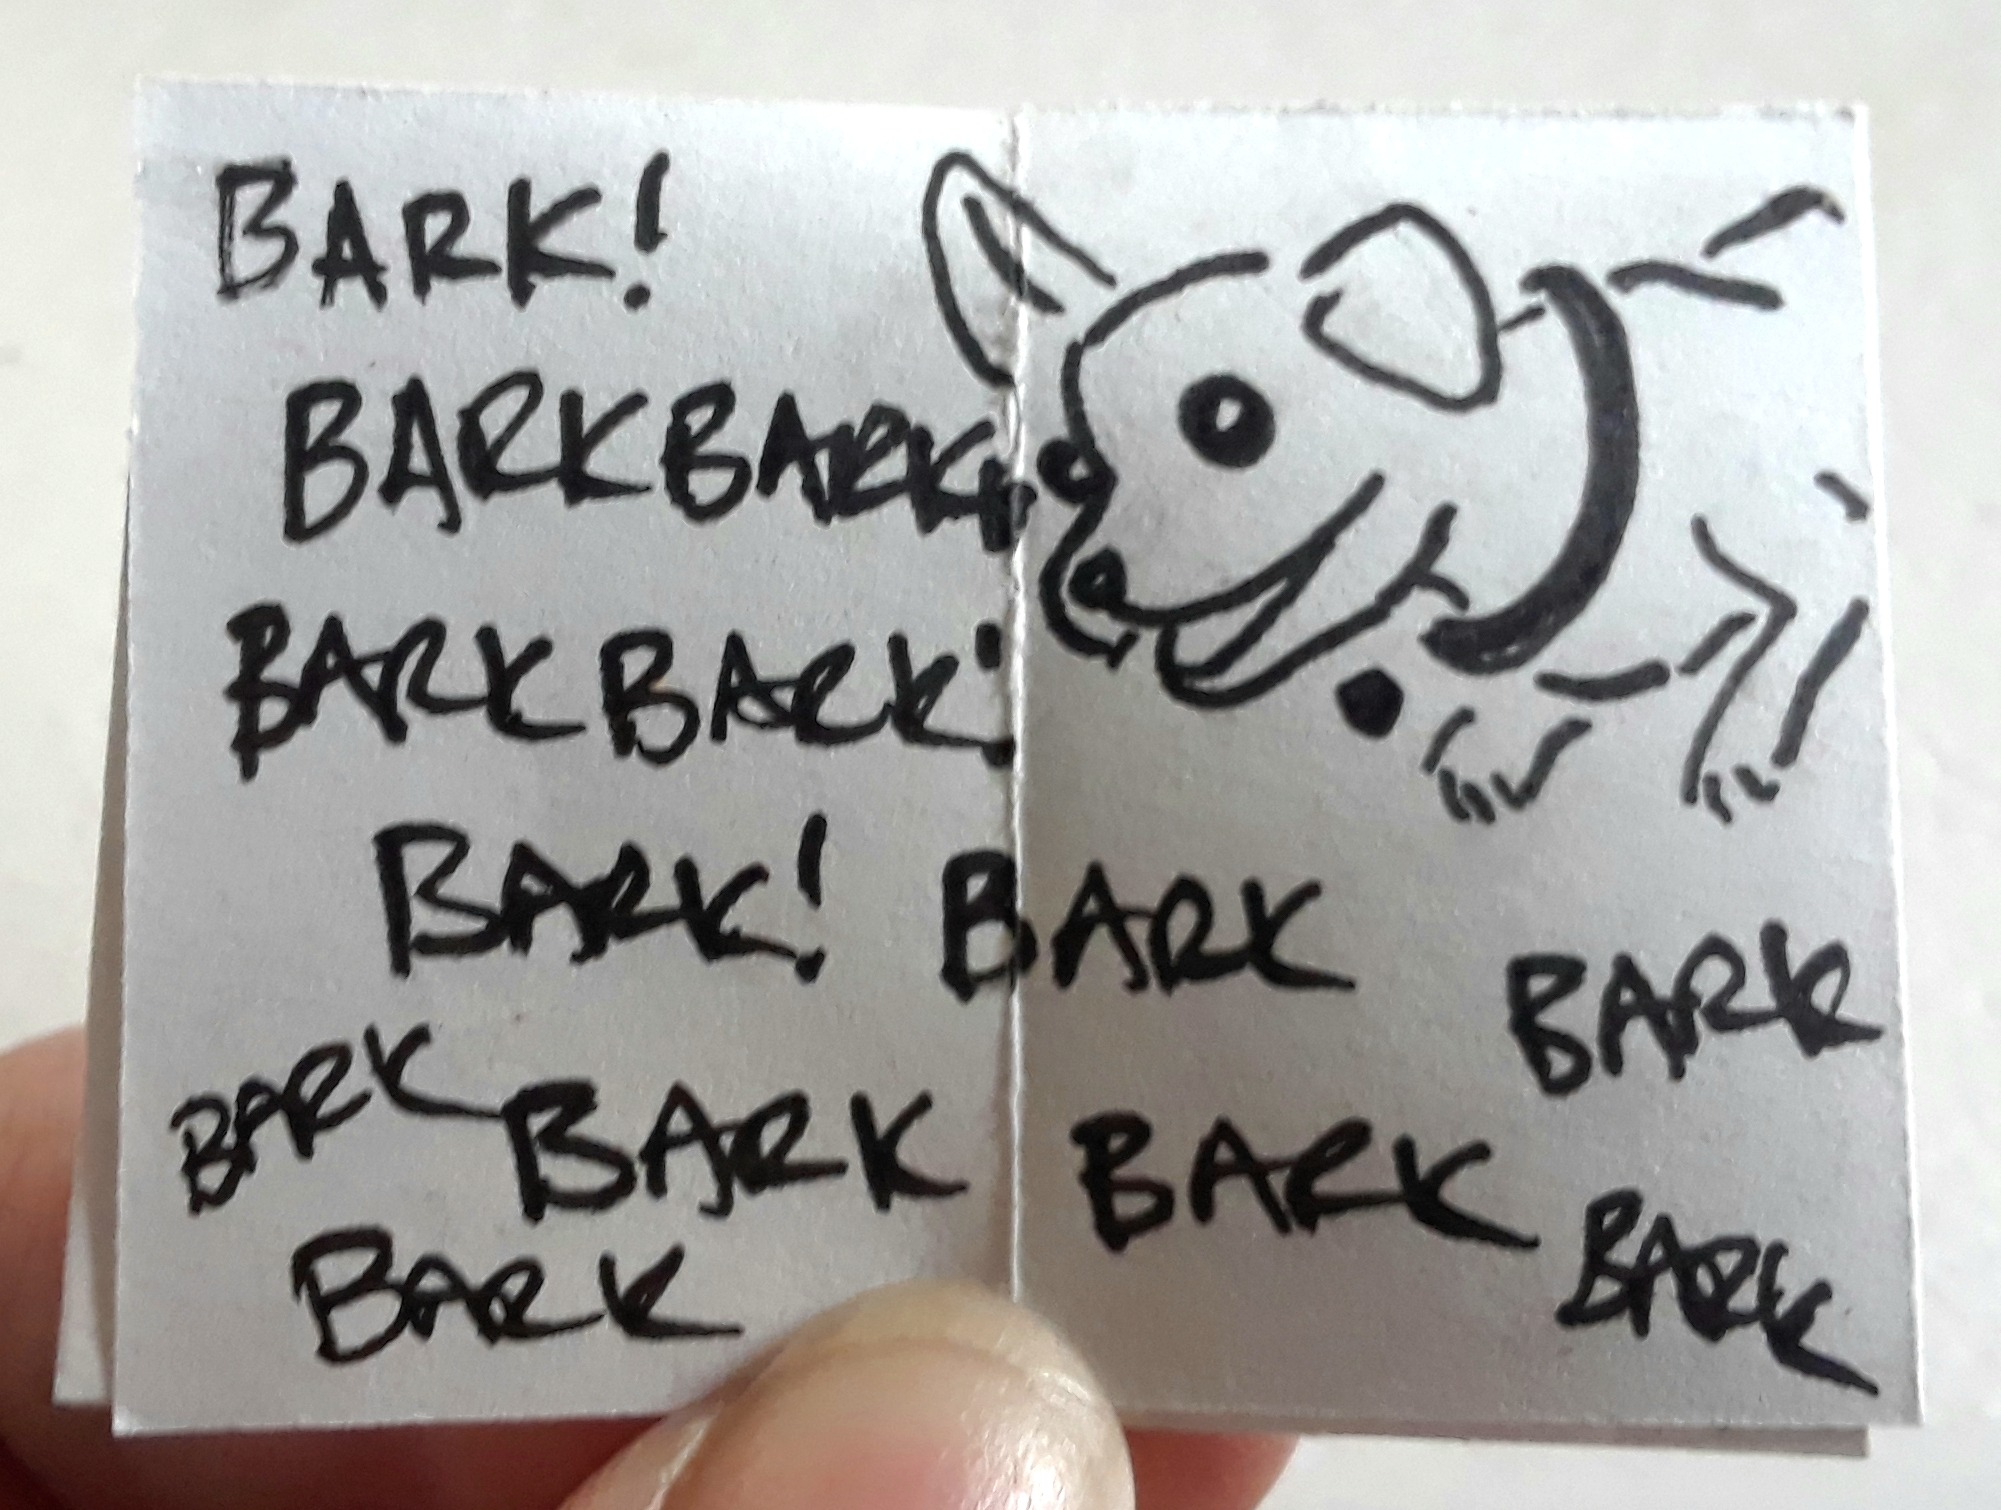 BARK!
BARKBARK!
BARKBARK!
BARK! BARK
BARK
BARK BARK BARK
BARK BARK